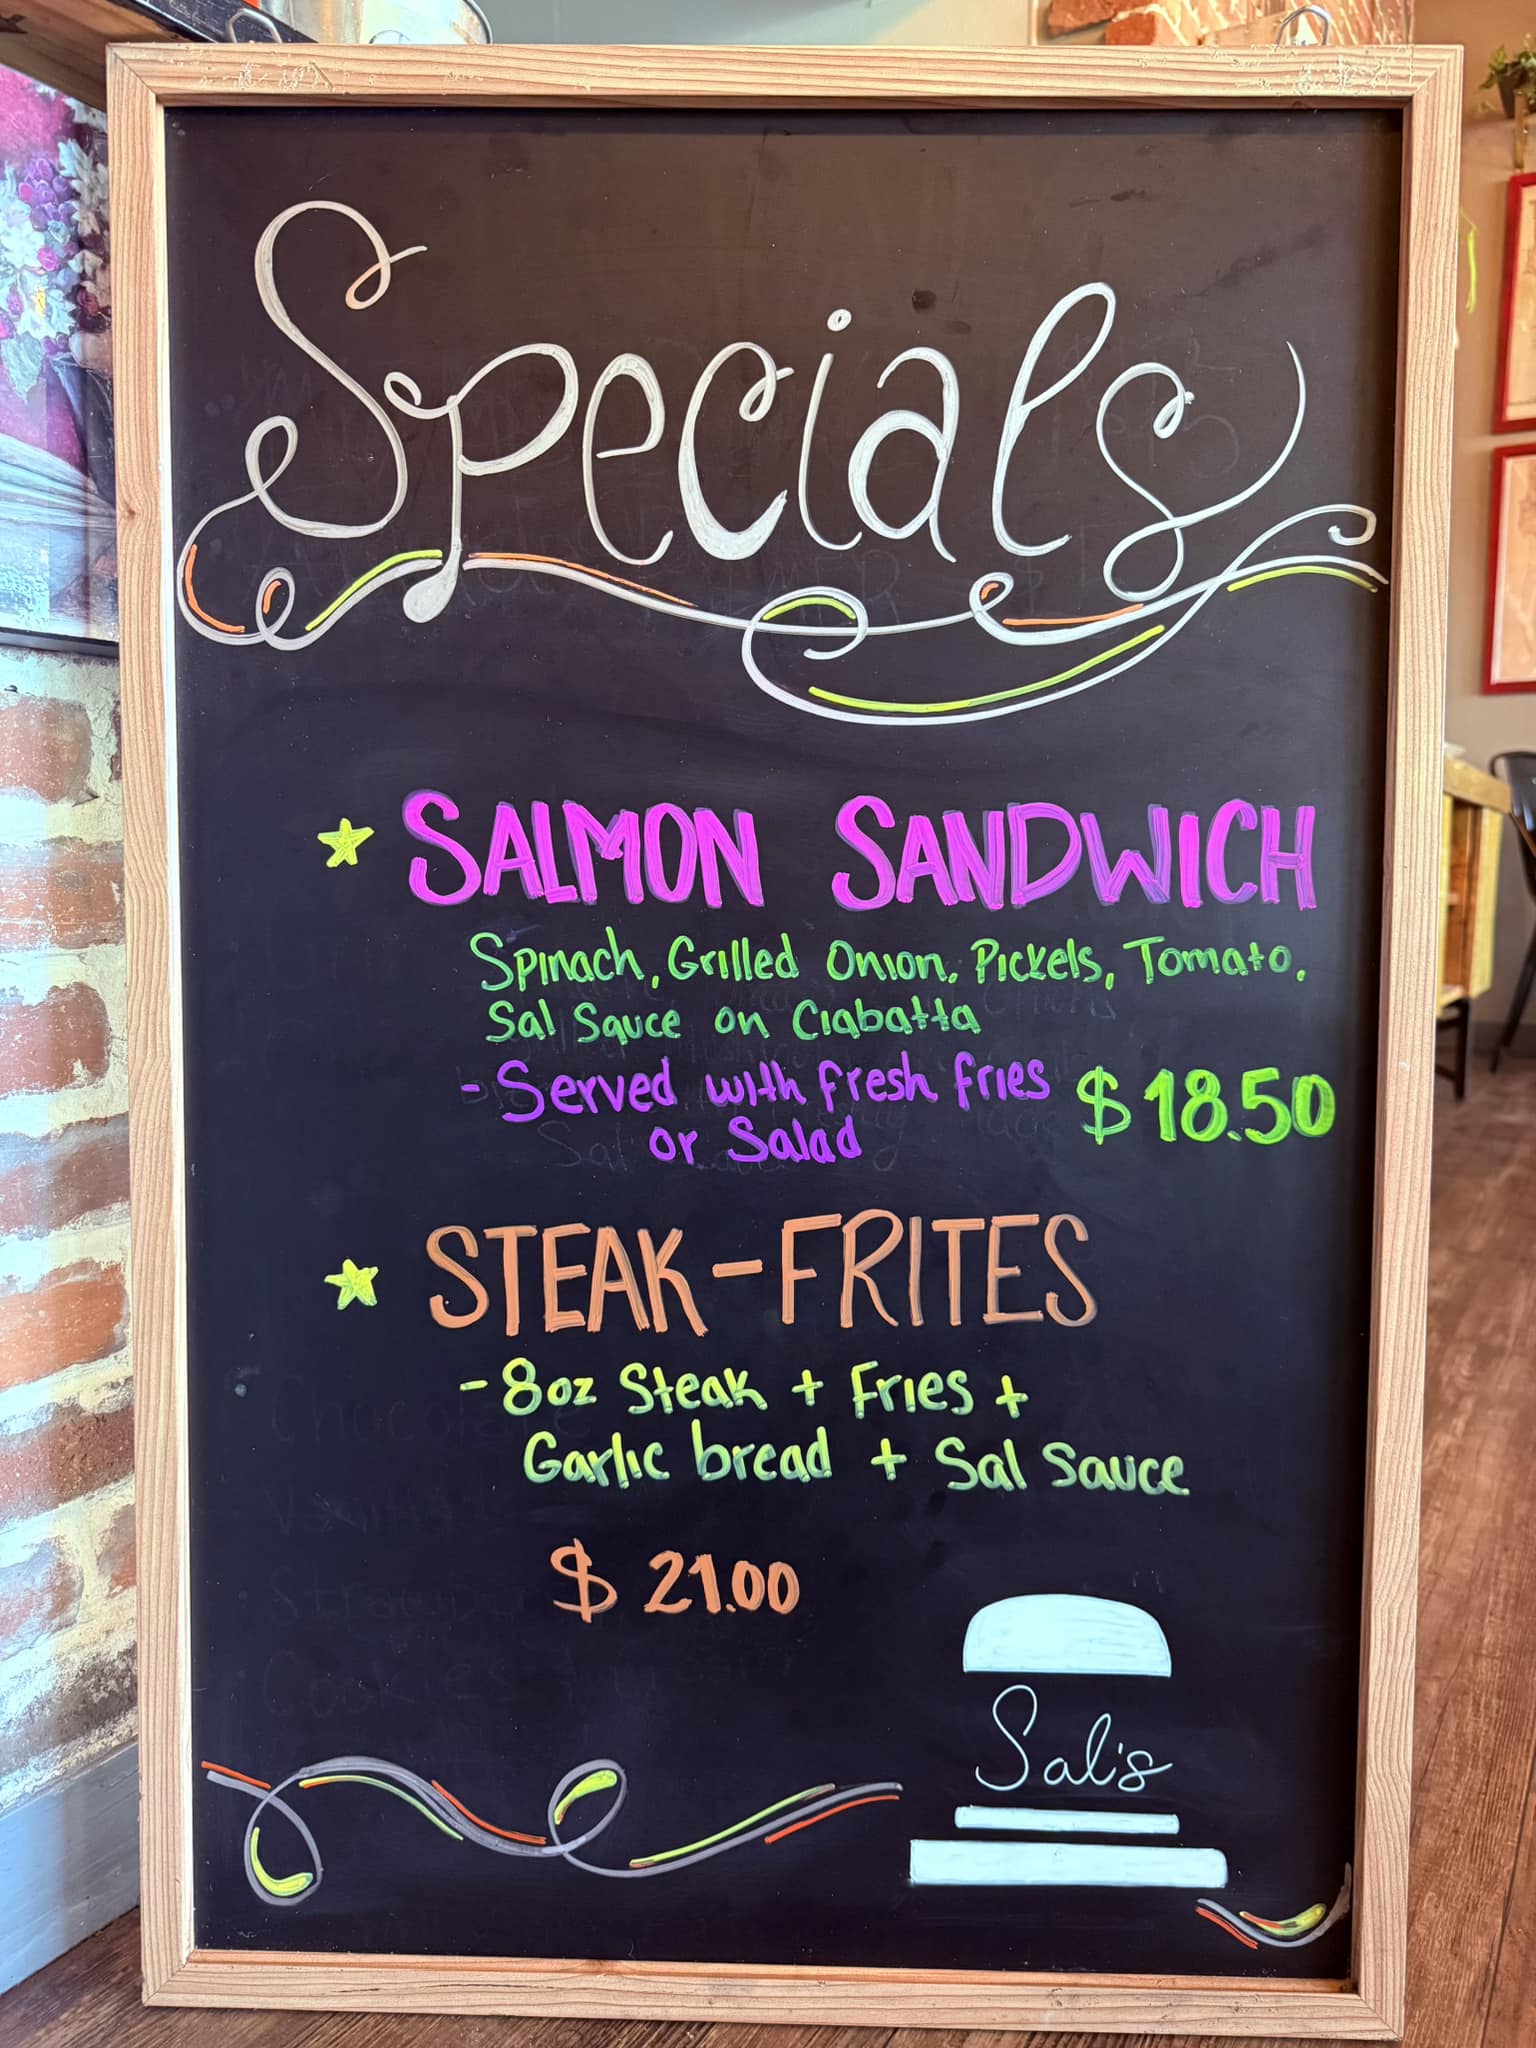 Specials
SALMON SANDWICH
Spinach, Grilled Onion, Pickels, Tomato,
Sal Sauce on Ciabatta
- Served with fresh fries
or Salad
$18.50
STEAK-FRITES
- 8oz Steak + Fries +
Garlic bread + Sal Sauce
$21.00
Sal's